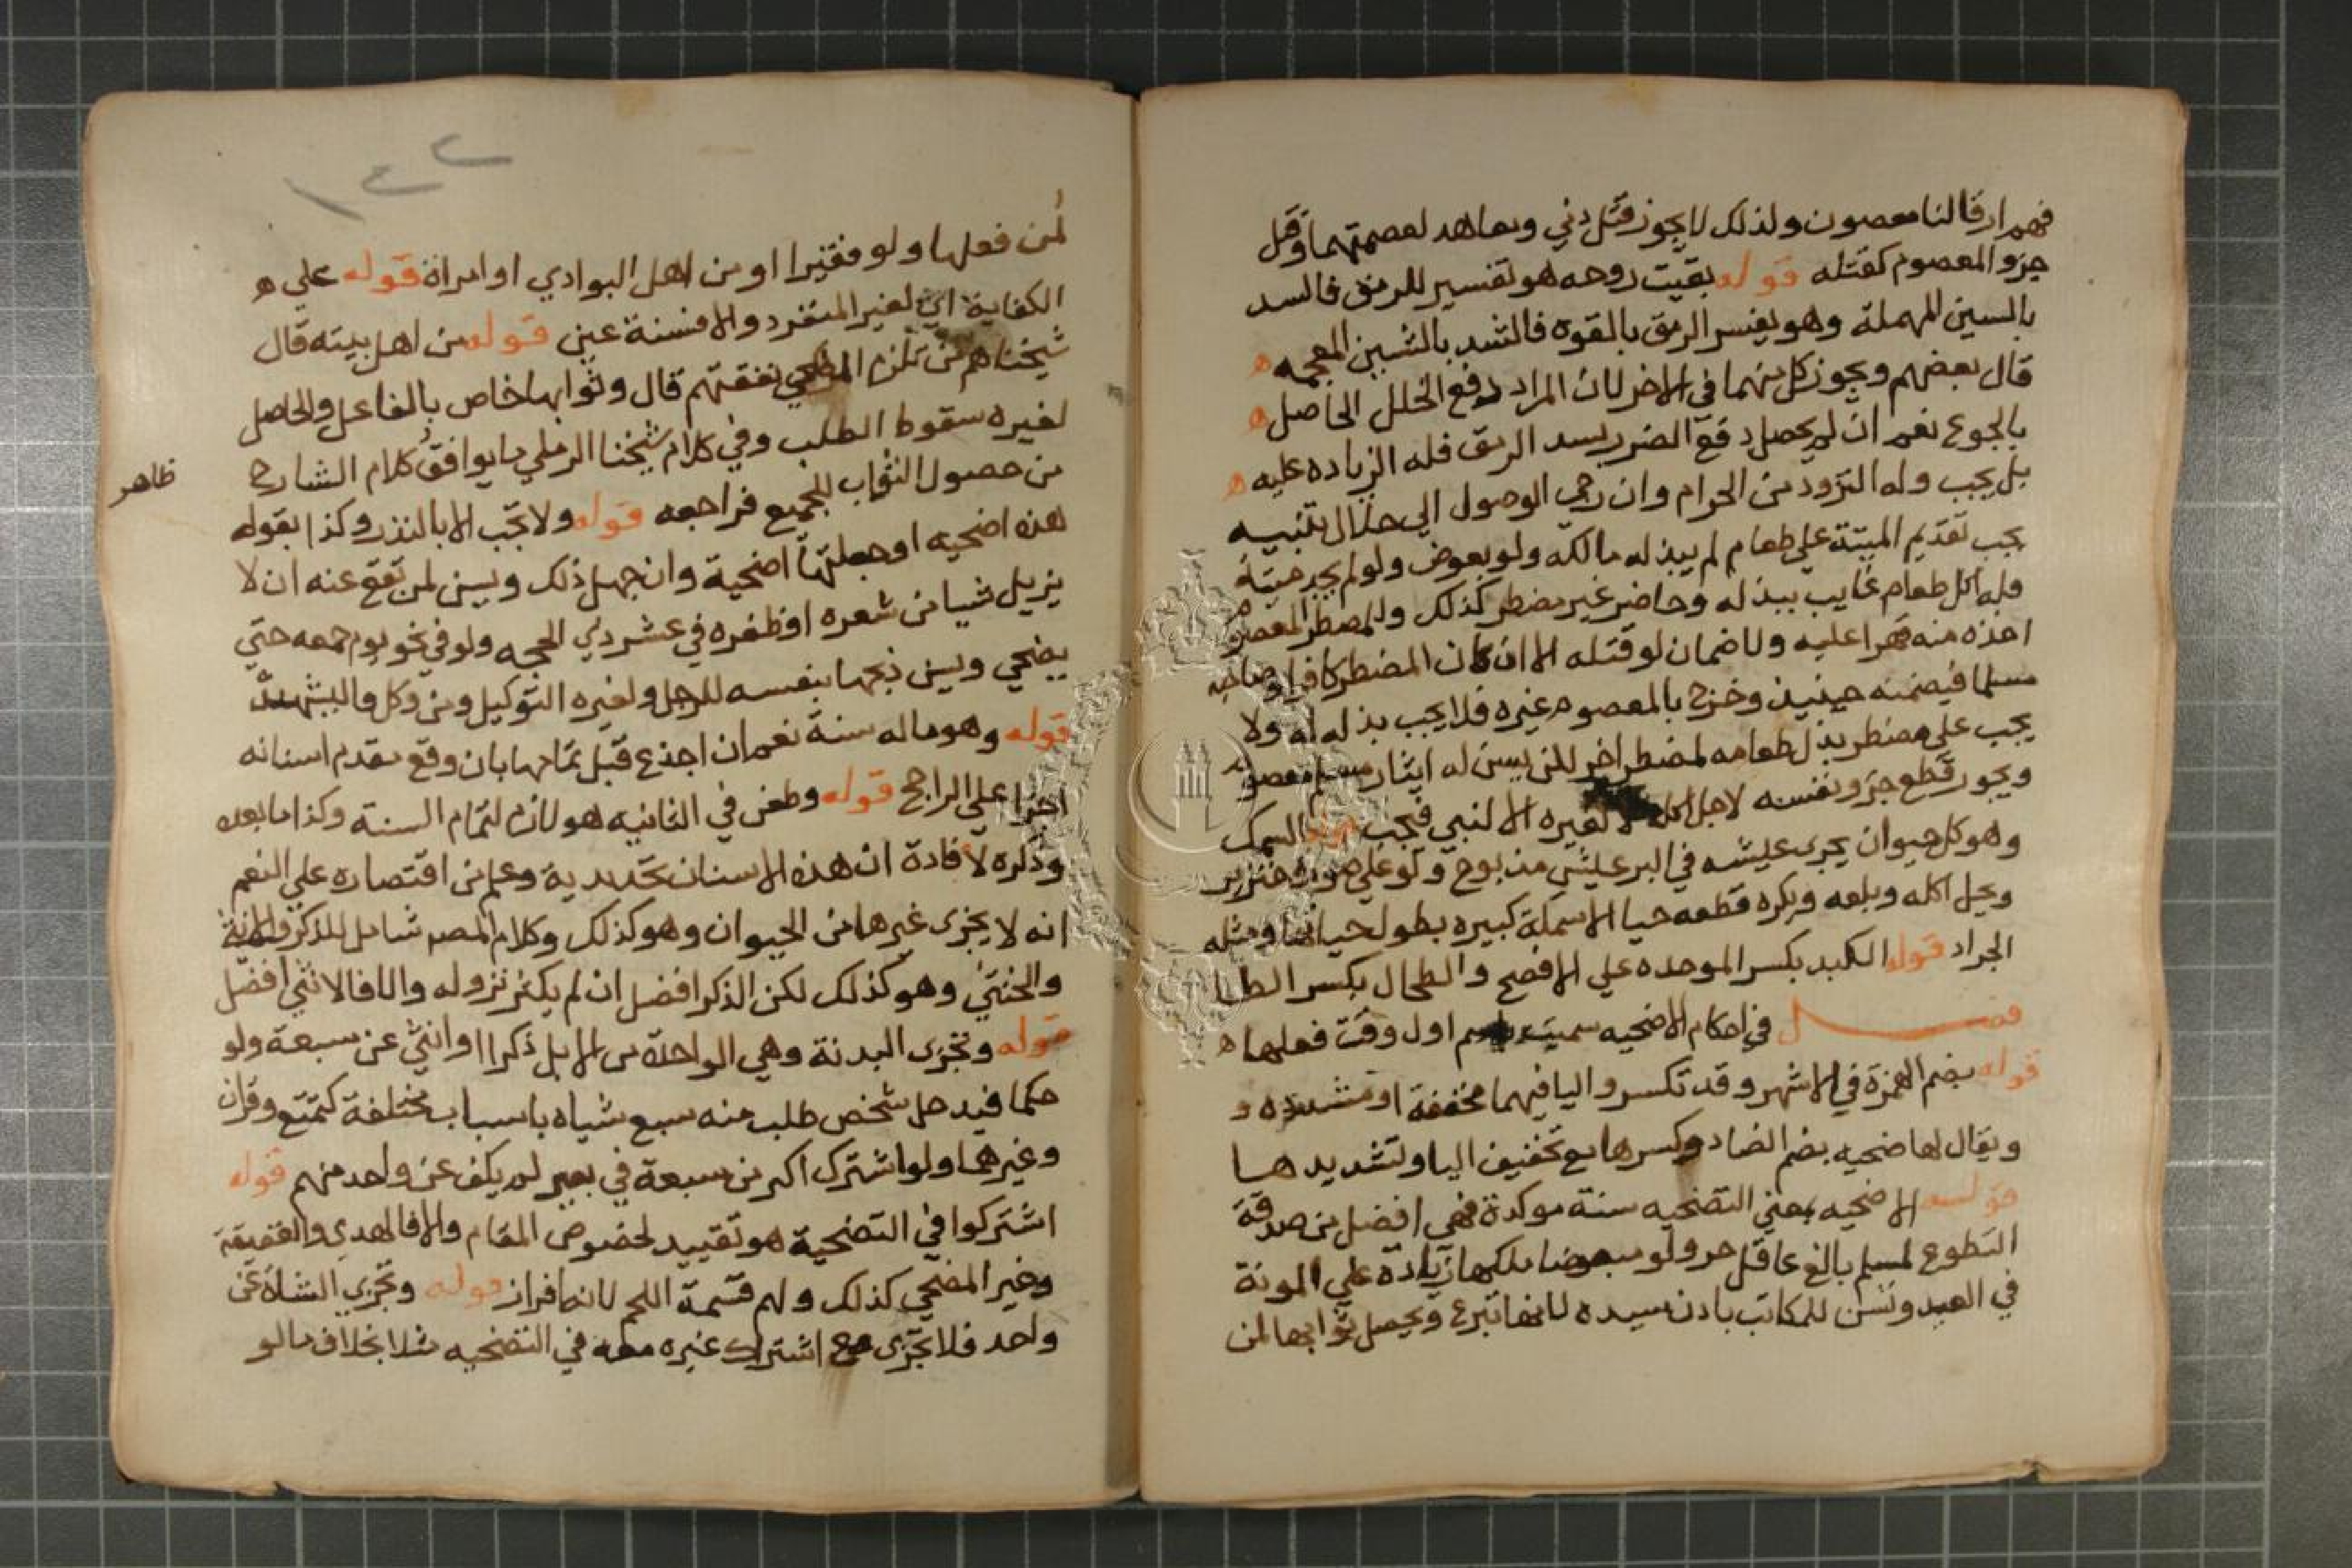 فهم ارقا لنا معصون ولذلك لا يجوز قتل ذمي ومعاهد لعصمتهما وقتل
جزو المعصوم كقتله قوله بقيت روحه هو تفسير للرمق فالسد
بالسين المهملة وهو يفسر الرمق بالقوه فالشد بالشين المعجمه ه
قال بعضهم ويجوز كل منهما في الاخر لان المراد دفع الخلل الحاصل ه
بالجوع نعم ان لم يحصل دفع الضر بسد الرمق فله الزياده عليه ه
بل يجب وله التزود من الحرام وان رجي الوصول الي حلال تنبيه
يجب تقديم الميتة علي طعام لم يبذله مالكه ولو بعوض ولو لم يجد ميتة
فله اكل طعام غايب ببذله وحاضر غير مضطر كذلك وللمضطر المعصوم
اخذه منه قهرا عليه ولا ضمان لو قتله الا ان كان المضطر كافرا وصاحبه
مسلما فيضمنه حينيذ وخرج بالمعصوم غيره فلا يجب بذله له ولا
يجب علي مضطر بذل طعامه لمضطر اخر لكن يسن له ايثار مسلم معصوم
ويجوز قطع جزو نفسه لاجل اكله لا لغيره الا لنبي فيجب السمك
وهو كل حيوان يجري عيشه في البر عيش مذبوح ولو علي صورة خنزير
ويحل اكله وبلعه ويكره قطعه حيا الا سمكة كبيره بطول حياتها ومثله
الجراد قوله الكبد بكسر الموحده علي الافصح والطحال بكسر الطا
فصل في احكام الاضحيه سميت باسم اول وقت فعلها ه
قوله بضم الهمزة في الاشهر وقد تكسر واليا فيهما مخففة او مشدده و
ويقال لها ضحيه بضم الضاد وكسرها مع تخفيف اليا وتشديدها
قوله الاضحيه بمعني التضحيه سنة موكدة فهي افضل من صدقة
التطوع لمسلم بالغ عاقل حر ولو مبعضا ملكها زيادة علي المونة
في العيد وتسن للمكاتب باذن سيده لانها تبرع ويحصل ثوابها لمن
١٤٢
لمن فعلها ولو فقيرا او من اهل البوادي او امراة قوله علي ه
الكفاية اي لغير المنفرد والا فسنة عين قوله من اهل بيته قال
شيخنا هم من تلزم المضحي نفقتهم قال وثوابها خاص بالفاعل والحاصل
لغيره سقوط الطلب وفي كلام شيخنا الرملي ما يوافق كلام الشارح
ظاهر
من حصول الثواب للجميع فراجعه قوله ولا تجب الا بالنذر وكذا بقوله
هذه اضحيه او جعلتها اضحية وان جهل ذلك ويسن لمن تقع عنه ان لا
يزيل شيا من شعره او ظفره في عشر ذي الحجه ولو في نحو يوم جمعه حتي
يضحي ويسن ذبحها بنفسه للرجل ولغيره التوكيل ومن وكل فاليشهد
قوله وهو ماله سنة نعم ان اجذع قبل تمامها بان وقع مقدم اسنانه
اجزا علي الراجح قوله وطعن في الثانيه هو لازم لتمام السنة وكذا ما بعده
وذكره لافادة ان هذه الاسنان تحديدية وعلم من اقتصاره علي النعم
انه لا يجزى غيرها من الحيوان وهو كذلك وكلام المصم شامل للذكر والانثي
والخنثي وهو كذلك لكن الذكر افضل ان لم يكثر نزوله والا فالانثي افضل
قوله وتجزى البدنة وهي الواحدة من الابل ذكرا او انثي عن سبعة ولو
حكما فيدخل شخص طلب منه سبع شياه باسباب مختلفة كتمتع وقران
وغيرهما ولو اشترك اكثر من سبعة في بعير لم يكف عن واحد منهم قوله
اشتركوا في التضحية هو تقييد لخصوص المقام والا فالهدي والعقيقة
وغير المضحي كذلك ولهم قسمة اللحم لانها افراز قوله وتجزي الشاة عن
واحد فلا تجزى مع اشتراك غيره معه في التضحيه مثلا بخلاف ما لو